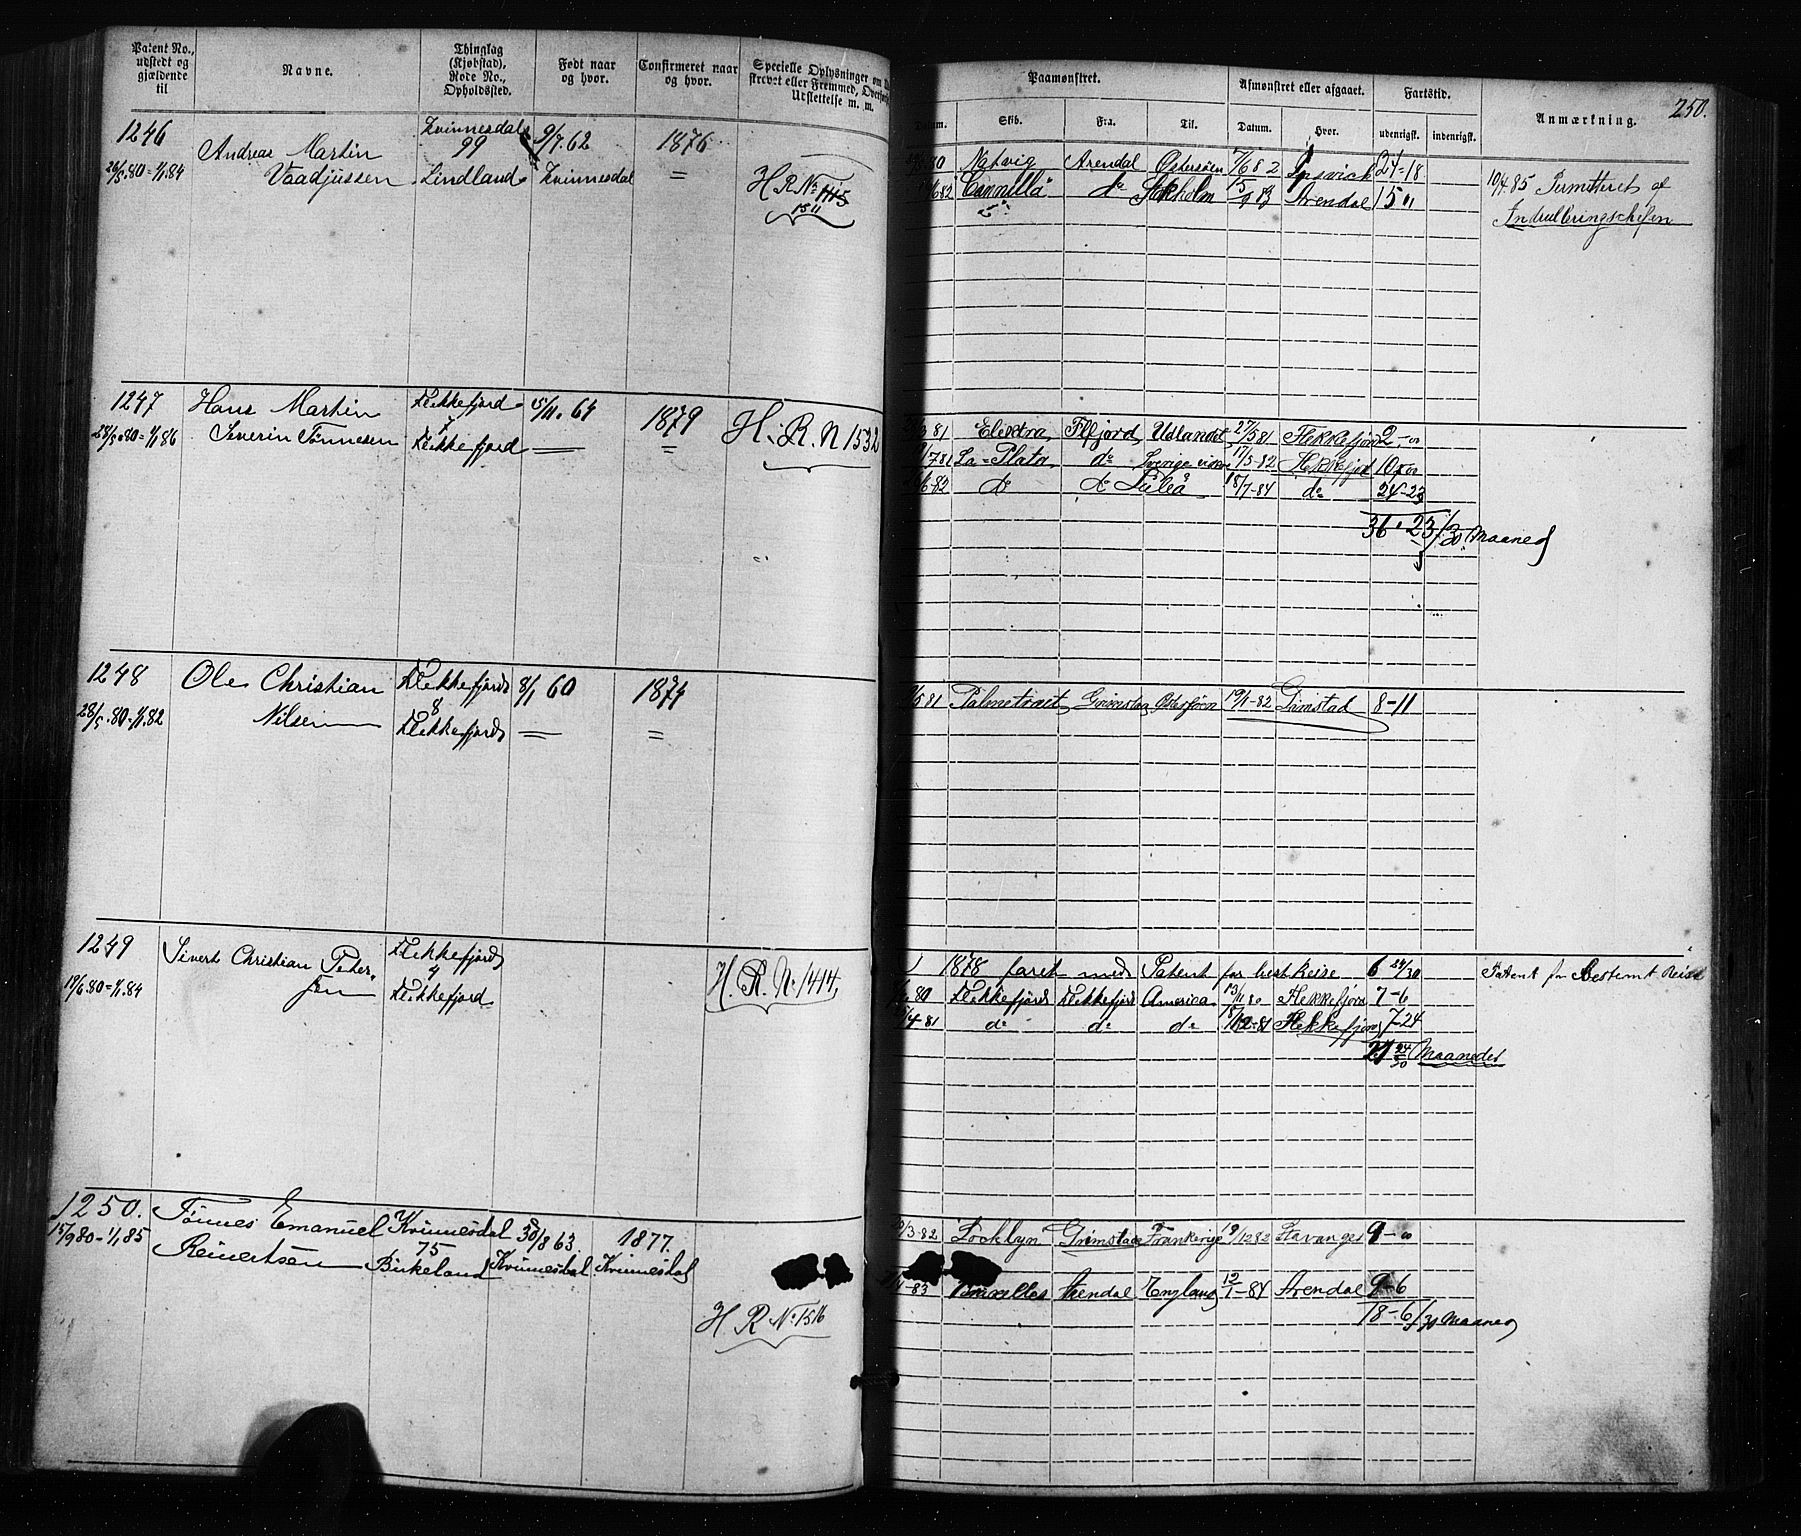 250.
Patent No., udstedt og gjældende til
Navne.
Thinglag (Kjøbstad), Rode No., Opholdssted.
Født naar og hvor.
Confirmeret naar og hvor.
Specielle Oplysninger om
streret eller Fremmed,
Udslettelse m. m.
Paamønstret.
Afmønstret eller afgaaet.
Fartstid.
Anmærkning.
Datum.
Skib.
Fra.
Til.
Datum.
Hvor.
udenrigsk.
indenrigsk.
1246
26/5.80=1/1.84
Andreas Martin
Vaadjussen
Kvinnesdal
99
Lindland
9/7.62
Kvinnesdal
1876
=
H R No
1511
Natvig Arendal Østersøen 7/6 82 Ipsvich 24-18
6/82 Camilla do Stokholm 15/9 83 Arendal 15 "
10/4.85 Permitteret af
Indrulleringschefen
1247
28/5.80=1/1.86
Hans Martin
Severin Tønnesen
Flekkefjord
7
Flekkefjord
15/11.64
=
1879
=
H. R. N 1532
81 Elektra Flfjord Udlandet 27/5 81 Flekkefjord 2-
7 81 La-Plata do Sverige 17/5-82 Flekkefjord 10
6-82 do do Luleå 18/7-84 do 24-23
36.23/30 Maaned
1248
28/5.80=1/1.82
Ole Christian
Nilsen
Flekkefjord
8
Flekkefjord
8/1 60
=
1874
=
5 81 Palmetræet Grimstad Østersøen 19/1-82 Grimstad 8-11
1249
19/6.80=1/1.84
Sivert Christian Peter-
sen
Flekkefjord
4
Flekkefjord
H. R. No 1414
1878 faret med Patent for best Reise 6 24/30
Patent for Bestemt Reise
80 Flekkefjord Flekkefjord America 13/11 80 Flekkefjord 7-6
4-81 do do do 18/12-81 Flekkefjord 7-24
21 24/30 Maaneder
1250.
15/9 80=1/1 85
Tønnes Emanuel
Reinertsen
Kvinnesdal
75
Birkeland
30/8 63
Kvinnesdal
1877.
Kvinnesdal
H R No 1516
3-82 Locklyn Grimstad Frankerige 19/12 82 Stavanger 9-
83 Arendal England 12/1-84 Arendal 9-6
18-6/30 Maaned